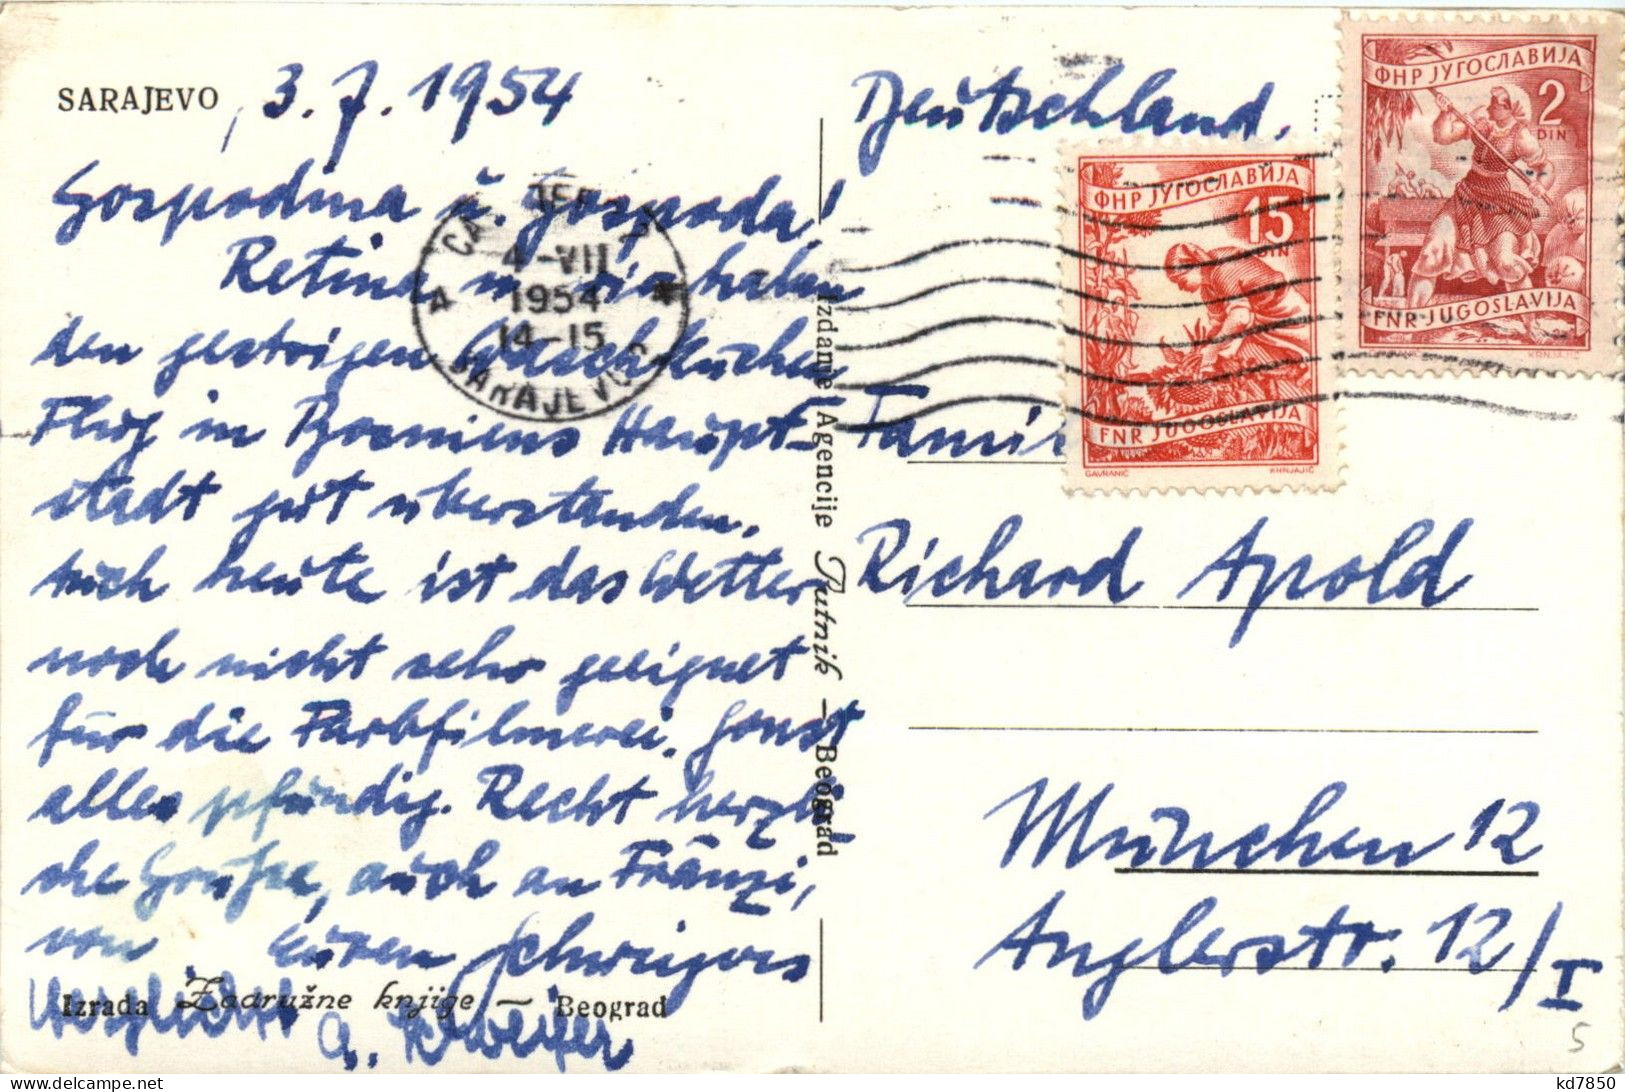 SARAJEVO, 3.7.1954
Gospodina u. Gospoda!
Retina, m wir haben
den gestrigen
Flug in Bosniens Haupt-
stadt gut überstanden.
Auch heute ist das Wetter
noch nicht sehr geeignet
für die Farbfilmerei. Sonst
alles pfündig. Recht herzli-
che Grüße, auch an Fränzi,
von euren Schweigers
Herzlichst
Izrada Zadružne knjige — Beograd
4-VII
1954
14-15
SARAJEVO
Izdanje Agencije Putnik — Beograd
Deutschland.
ФНР ЈУГОСЛАВИЈА
15
DIN
FNR JUGOSLAVIJA
GAVRANIĆ KRNJAJIĆ
ФНР ЈУГОСЛАВИЈА
2
DIN
FNR JUGOSLAVIJA
KRNJAJIĆ
Richard Apold
München 12
Anglerstr. 12/I
5
kd7850